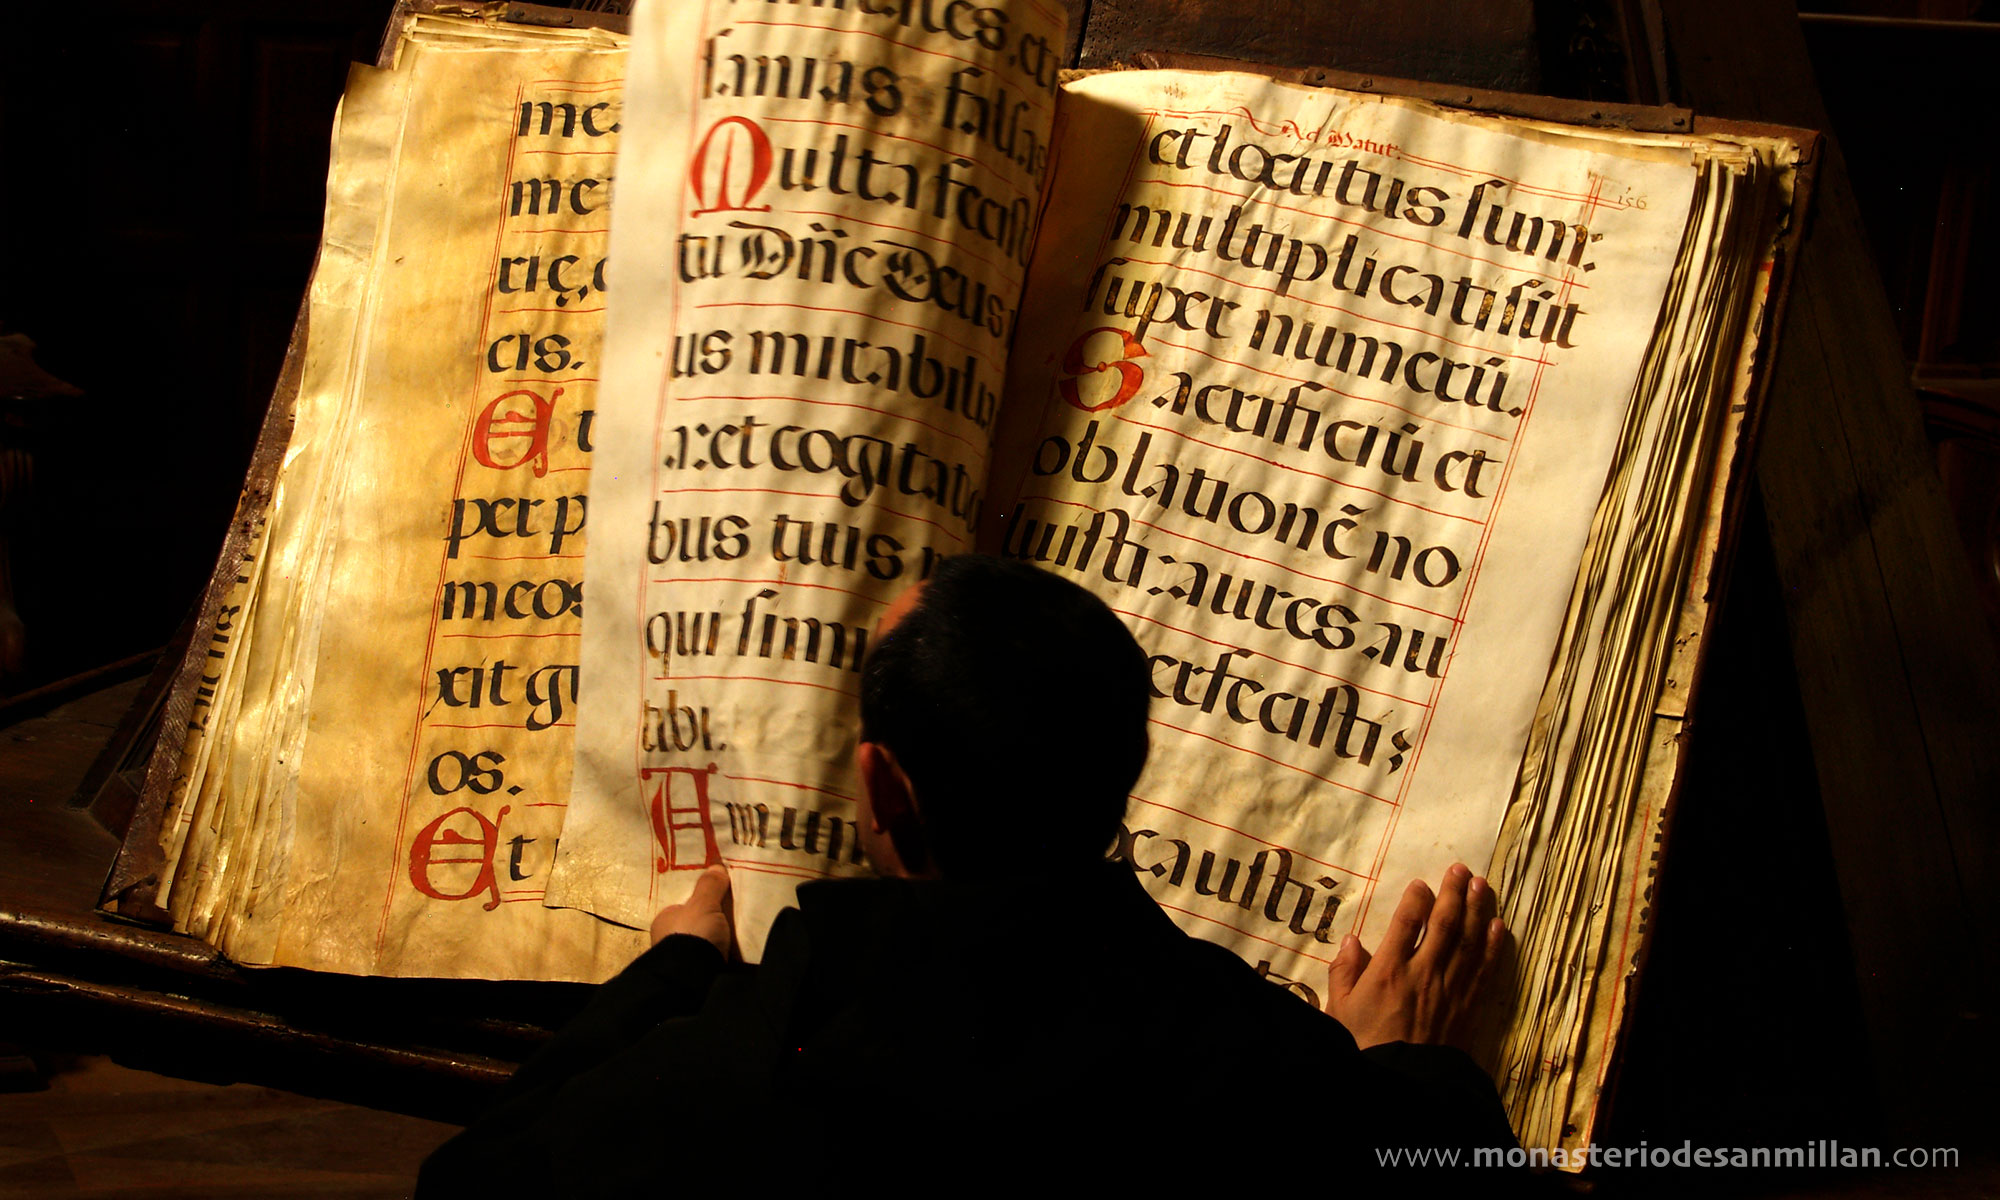 me
me
ric,
cis.
Et
per p
meos
xit gr
os.
Et
et
ſanias falſas
Multa feciſt
tu Dñe Deus
us mirabilia
a: et cogitatio
bus tuis
qui ſimi
tibi.
Annun
Ad Matut.
156
et locutus ſum:
multiplicati ſūt
ſuper numerū.
Sacrificiū et
oblationē no
luiſti: aures au
erfeciſti:
ocauſtū
www.monasteriodesanmillan.com